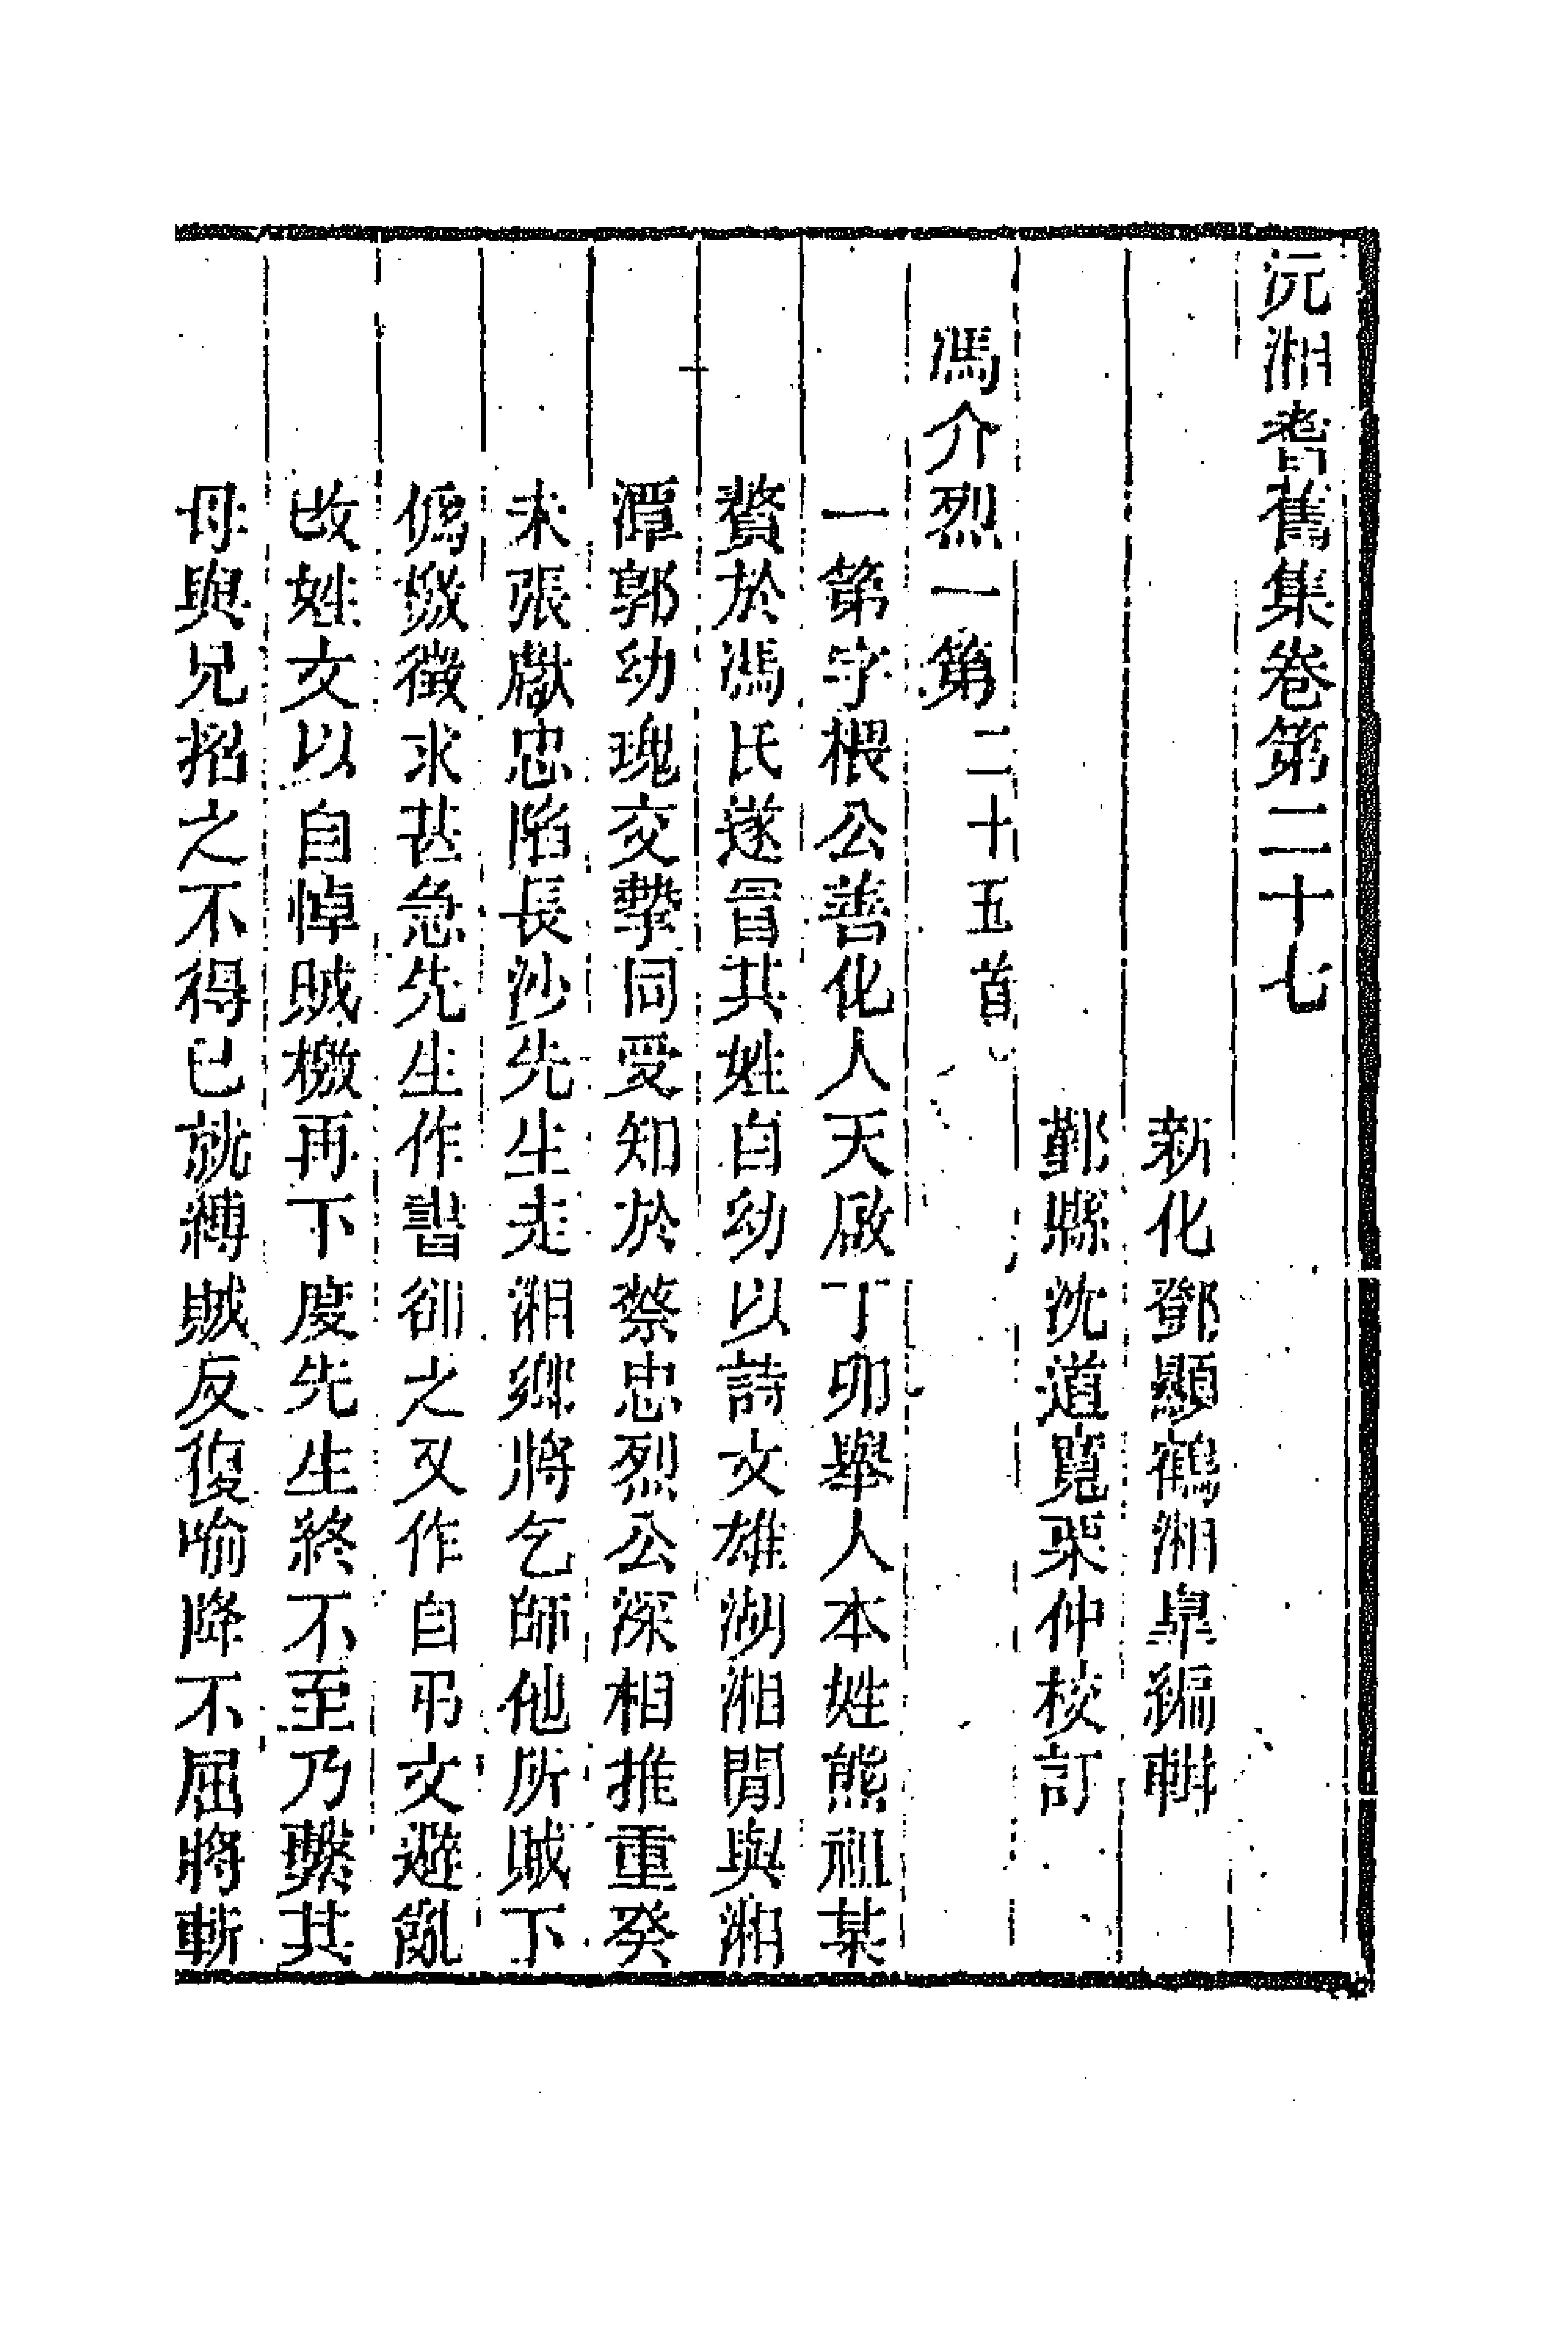 沅湘耆舊集卷第二十七
新化鄧顯鶴湘臯編輯
鄞縣沈道寬栗仲校訂
馮介烈一第二十五首
一第字椳公善化人天啟丁卯舉人本姓熊祖某
贅於馮氏遂冒其姓自幼以詩文雄湖湘閒與湘
潭郭幼瑰交摯同受知於蔡忠烈公深相推重癸
未張獻忠陷長沙先生走湘鄉將乞師他所賊下
僞檄徵求甚急先生作書卻之又作自弔文避亂
改姓文以自悼賊檄再下度先生終不至乃繫其
母與兄招之不得已就縛賊反復喻降不屈將斬